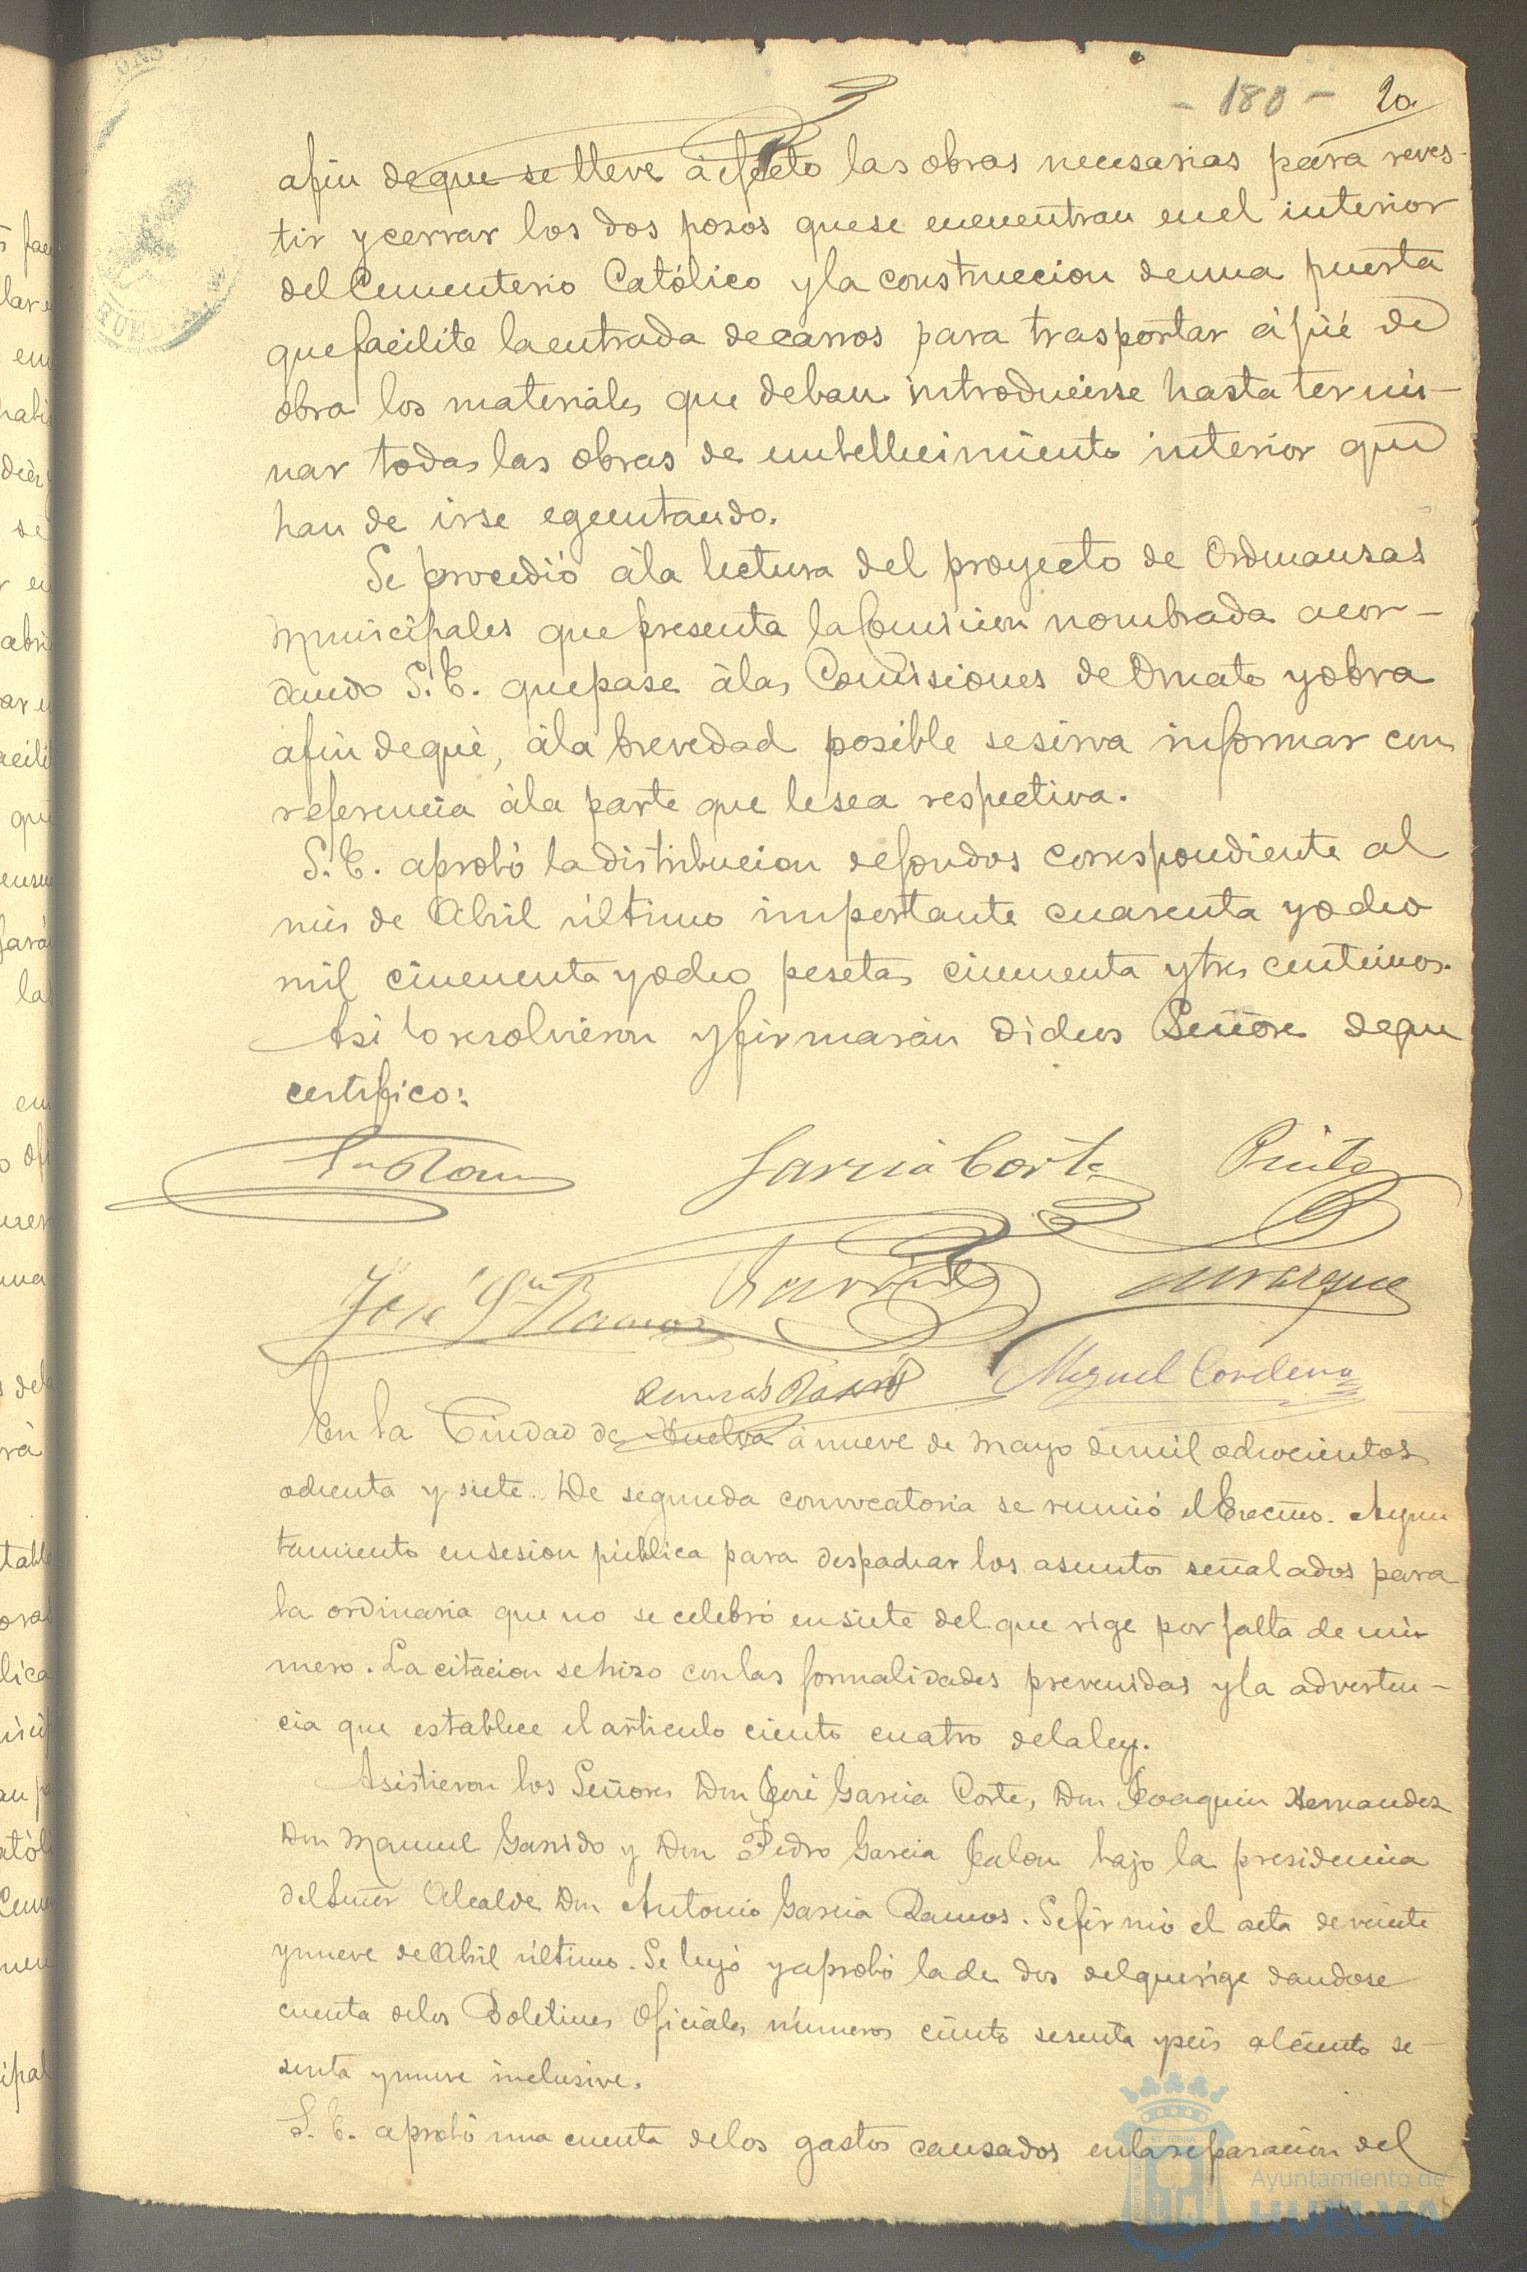 - 180 - 20
afin deque se lleve áefecto las obras necesarias para reves-
tir ycerrar los dos posos quese encuentran enel interior
delCementerio Católico yla construccion deuna puerta
quefacilite laentrada decarros para trasportar ápié de
obra los materiales que deban introducirse hasta termi-
nar todas las obras de embellecimiento interior que
han de irse egecutando.
Se procedió ála lectura del proyecto de Ordenansas
Municipales que presenta laComision nombrada acor-
dando S.E. quepase álas Comisiones deOrnato yobra
afin dequé, ála brevedad posible sesirva informar con
referencia ála parte que lesea respectiva.
S.E. aprobó ladistribucion defondos correspondiente al
mes de Abril último importante cuarenta yocho
mil cincuenta yocho pesetas cincuenta ytres centimos.
Asi loresolvieron yfirmarán dichos Señores deque
certifico:
Garcia Corte Pinto
José Gª Ramos Garrido Marquez
Miguel Cordero
En la Ciudad de Huelva á nueve de Mayo demil ochocientos
ochenta y siete. De segunda convocatoria se reunió elExcmo. Ayun
tamiento ensesion pública para despachar los asuntos señalados para
la ordinaria que no se celebró ensiete del que rige por falta de nú-
mero. La citacion sehizo conlas formalidades prevenidas yla adverten-
cia que establece el artículo ciento cuatro delaley.
Asistieron los Señores Don José Garcia Corte, Don Joaquin Hernandez
Don Manuel Garrido y Don Pedro Garcia Jalon bajo la presidencia
delSeñor Alcalde Don Antonio Garcia Ramos. Sefirmó el acta deveinte
ynueve deAbril último. Se leyó yaprobó lade dos delquerige dandose
cuenta delos Boletines Oficiales números ciento sesenta yseis alciento se-
senta ynueve inclusive.
S.E. aprobó una cuenta delos gastos causados enlareparacion del
Ayuntamiento de
HUELVA